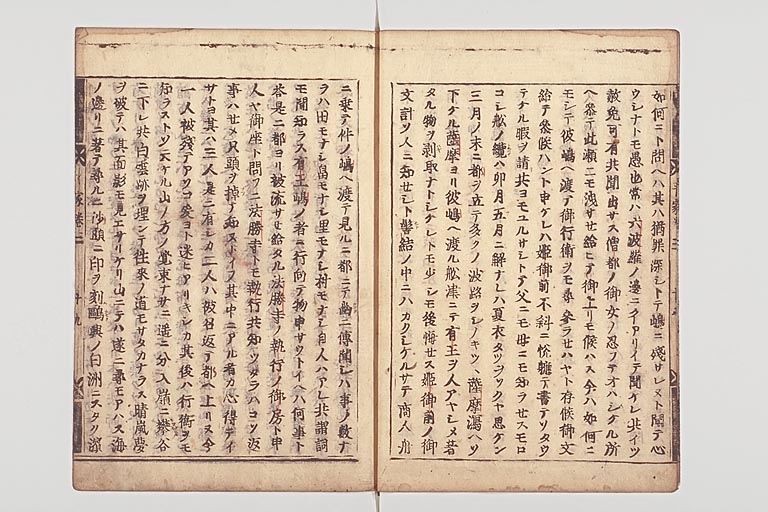 如何ニト問ヘハ其ハ猶罪深シトテ嶋ニ残サレヌト聞テ心
ウシナトモ愚也常ハ六波羅ノ邊ニタヽスミアリイテ聞ケレ共イツ
赦免可有共聞出サス僧都ノ御女ノ忍フテオハシケル所
ヘ參テ此瀬ニモ洩サセ給ヒテ御上リモ候ハス今ハ如何ニ
モシテ彼嶋ヘ渡テ御行衛ヲモ尋參ラセハヤト存候御文
給テ參候ハント申ケレハ姫御前不斜ニ悦テ書テソタウ
テケル暇ヲ請共ヨモユルサシトテ父ニモ母ニモ知ラセスモロ
コシ舩ノ纜ハ卯月五月ニ解ナレハ夏衣タツヲヲソクヤ思ケン
三月ノ末ニ都ヲ立テ多クノ波路ヲシノキツヽ薩摩潟ヘソ
下ケル薩摩ヨリ彼嶋ヘ渡ル舩津ニテ有王ヲ人アヤシメ着
タル物ヲ剥取ナトシケレトモ少シモ後悔セス姫御前ノ御
文計ソ人ニ知セシト髻結ノ中ニハカクシケルサテ商人舟
ニ乗テ件ノ嶋ヘ渡テ見ルニ都ニテ幽ニ傳聞シハ事ノ數ナ
ラハ田モナシ畠モナシ里モナシ村モナシ自人ハアレ共謂詞
モ聞知ラス有王嶋ノ者ニ行向テ物申サウトイヘハ何事ト
答是ニ都ヨリ被流サセ給タル法勝寺ノ執行ノ御房ト申
人ヤ御座ト問フニ法勝寺トモ執行共知ツタラハコソ返
事ハセメ只頭ヲ掉テ知スソイフ其中ニアル者カ心得テイ
サトヨ其ハ三人是ニ有シカ二人ハ被召返テ都ヘ上リヌ今
一人被殘テアソココ爰ヨト迷ヒアリキシカ其後ハ行衛ヲモ
知ラストソ云ケル山ノ方ノ覚束ナサニ遥ニ分入嶺ニ攀谷
ニ下レ共白雲跡ヲ埋シテ往來ノ道モサタカナラス晴嵐夢
ヲ破テハ其面影モ見エサリケリ山ニテハ遂ニ尋モアハス海
ノ邊リニ著テ尋ルニ沙頭ニ印ヲ刻鷗興ノ白洲ニスタク濱